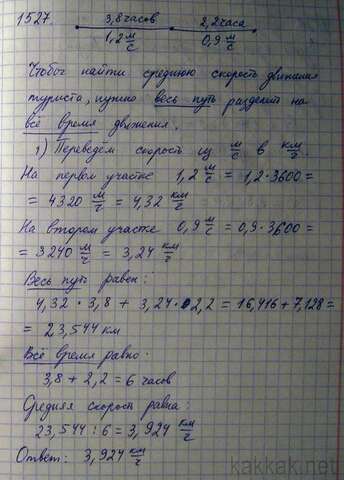 1527
3,8 часов 2,2 часа
1,2 м/с 0,9 м/с
Чтобы найти среднюю скорость движения
туриста, нужно весь путь разделит на
всё время движения.
1) Переведём скорость из м/с в км/г.
На первом участке 1,2 м/с = 1,2·3600 =
= 4320 м/г = 4,32 км/г
На втором участке 0,9 м/с = 0,9·3600 =
= 3240 м/г = 3,24 км/г
Весь путь равен:
4,32 · 3,8 + 3,24 · 2,2 = 16,416 + 7,128 =
= 23,544 км
Всё время равно:
3,8 + 2,2 = 6 часов
Средняя скорость равна:
23,544 : 6 = 3,924 км/г
Ответ: 3,924 км/г
kakkak.net